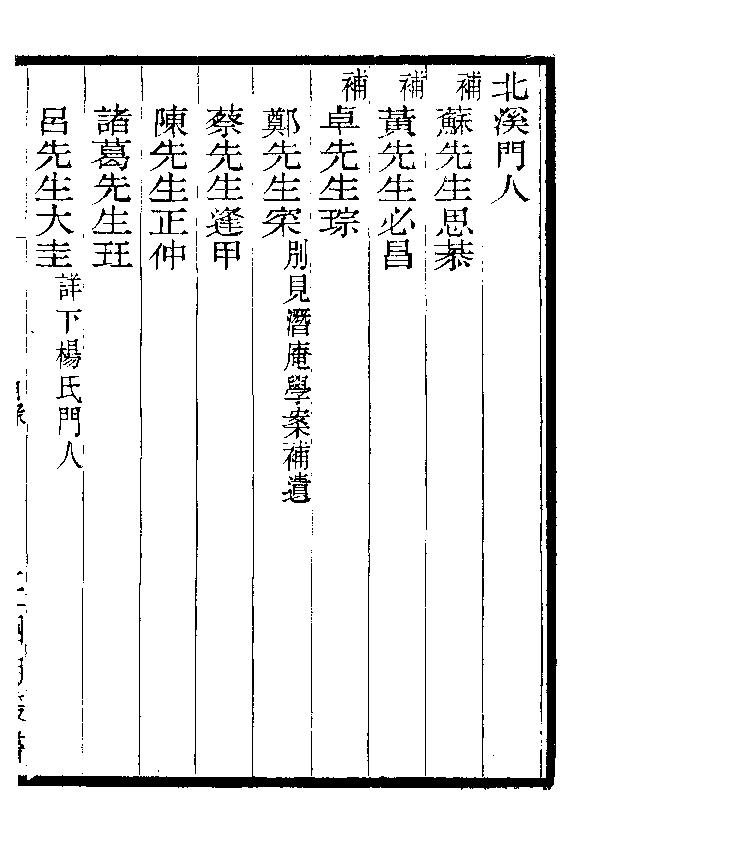 北溪門人
補 蘇先生思恭
補 黃先生必昌
補 卓先生琮
鄭先生宷別見潛庵學案補遺
蔡先生逢甲
陳先生正仲
諸葛先生玨
呂先生大圭詳下楊氏門人